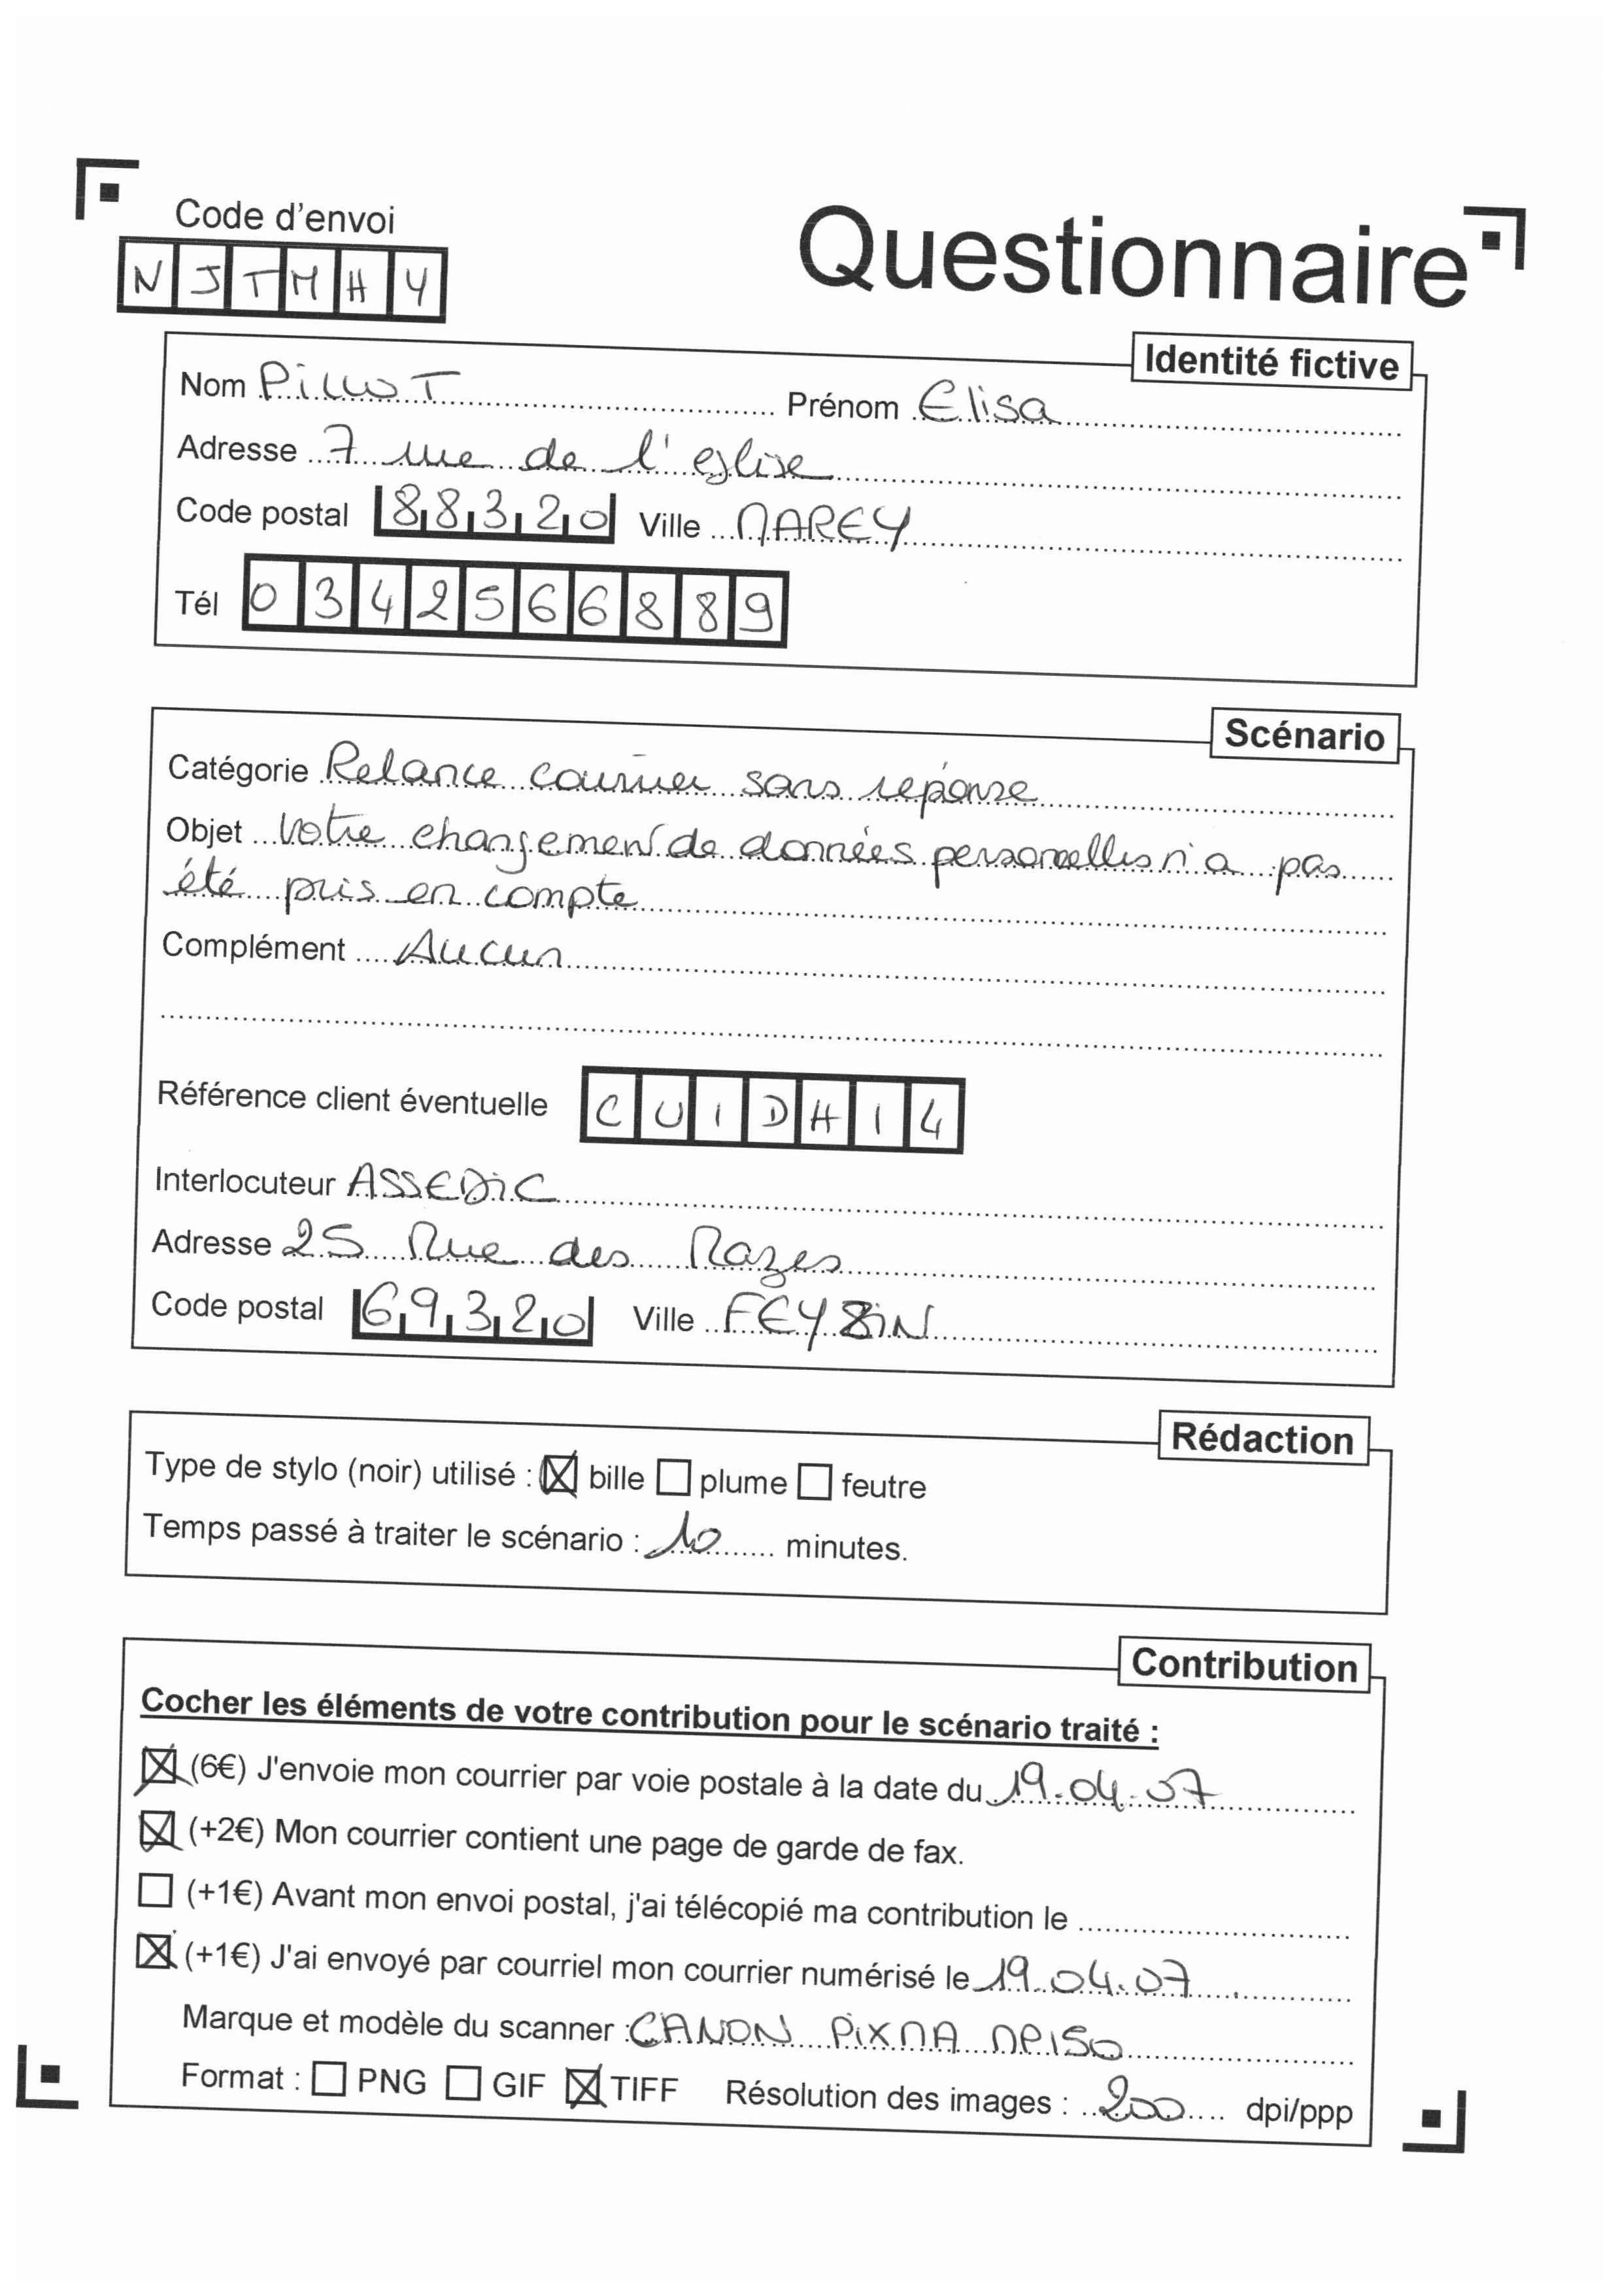 Code d'envoi
NJTMHY
Questionnaire
Identité fictive
Nom PilloT Prénom Elisa
Adresse 7 rue de l'eglise
Code postal 88320 Ville MAREY
Tél 0342566889
Scénario
Catégorie Relance courrier sans reponse
Objet Votre changement de données personnelles n'a pas
été pris en compte
Complément Aucun
Référence client éventuelle CUIDH14
Interlocuteur ASSEDiC
Adresse 25 Rue des Razes
Code postal 69320 Ville FEYSiN
Rédaction
Type de stylo (noir) utilisé : bille plume feutre
Temps passé à traiter le scénario : 10 minutes.
Contribution
Cocher les éléments de votre contribution pour le scénario traité :
(6€) J'envoie mon courrier par voie postale à la date du 19.04.07
(+2€) Mon courrier contient une page de garde de fax.
(+1€) Avant mon envoi postal, j'ai télécopié ma contribution le
(+1€) J'ai envoyé par courriel mon courrier numérisé le 19.04.07
Marque et modèle du scanner : CANON PiXMA MP150
Format : PNG GIF TIFF Résolution des images : 200 dpi/ppp